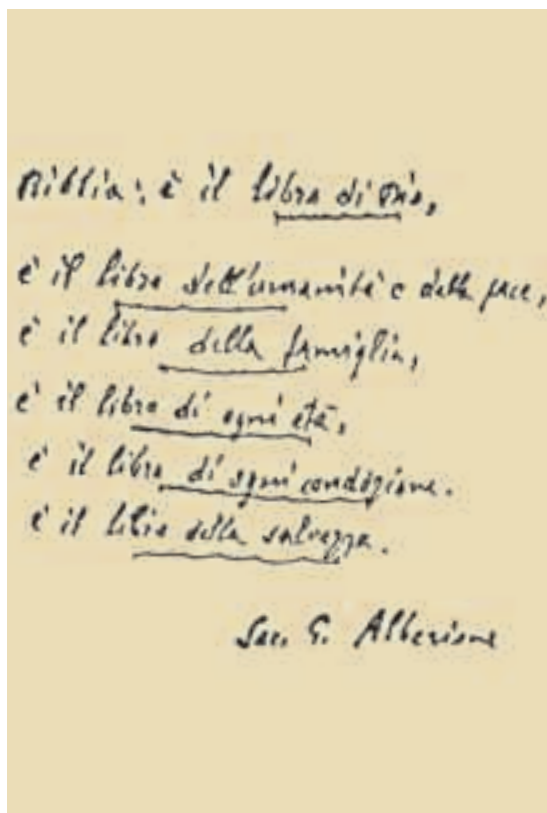 Bibbia: è il libro di Dio,
è il libro dell'umanità e della pace,
è il libro della famiglia,
è il libro di ogni età,
è il libro di ogni condizione.
è il libro della salvezza.
Sac. G. Alberione